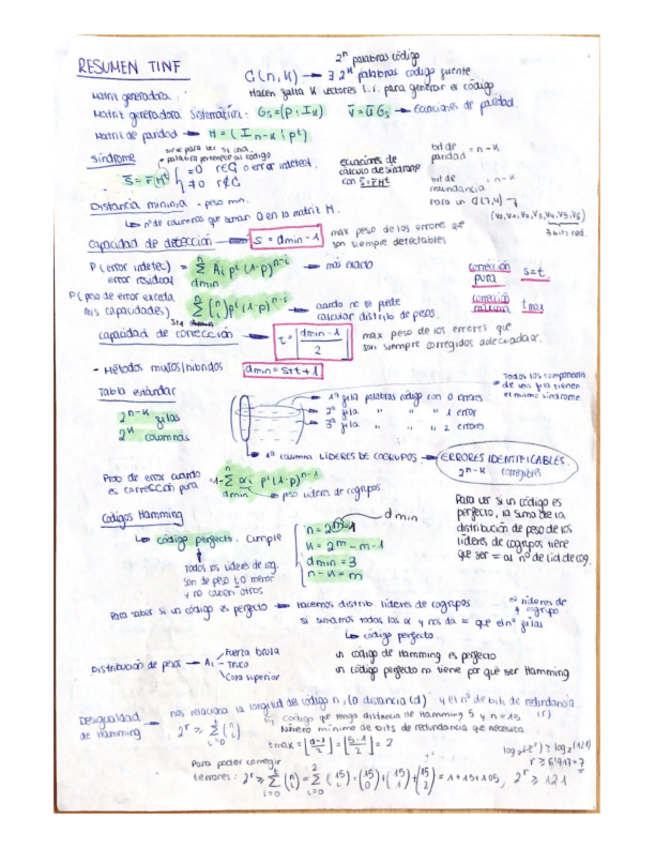 RESUMEN TINF
2ⁿ palabras código
C(n,k) → ∃ 2ᵏ palabras código fuente
Hacen falta k vectores l.i. para generar el código
Matriz generadora:
Matriz generadora sistemática: Gs=(P:Ik) v̄=ūGs → Ecuaciones de paridad.
Matriz de paridad → H=(In-k | Pᵗ)
síndrome
palabra pertenece al código
s̄=r̄Hᵗ { =0 r∈C o error indetect.
≠0 r∉C
ecuaciones de cálculo de síndrome con s̄=r̄Hᵗ
bit de paridad = n-k
bit de redundancia = n-k
para un C(7,4)
(v0,v1,v2,v3,v4,v5,v6)
3 bits red.
Distancia mínima = peso min.
↳ nº de columnas que suman 0 en la matriz H.
Capacidad de detección → s = dmin-1
max peso de los errores que son siempre detectables
P(error indetec) = Σ Ai pⁱ(1-p)ⁿ⁻ⁱ → más exacto
error residual dmin
corrección pura s=t.
P(peso de error exceda mis capacidades) = Σ (n i) pⁱ(1-p)ⁿ⁻ⁱ → cuando no se puede calcular distrib de pesos.
corrección máxima tmax
capacidad de corrección → t = ⌊(dmin-1)/2⌋
max peso de los errores que son siempre corregidos adecuadar.
- Métodos mixtos/híbridos dmin=s+t+1
Tabla estándar
2ⁿ⁻ᵏ filas
2ᵏ columnas
→ 1ª fila palabras código con 0 errores
→ 2ª fila " " " 1 error
→ 3ª fila " " " 2 errores
Todos los componentes de una fila tienen el mismo síndrome
↳ 1ª columna LÍDERES DE COGRUPOS → ERRORES IDENTIFICABLES.
2ⁿ⁻ᵏ corregibles
Prob de error cuando es corrección pura = 1-Σ αi pⁱ(1-p)ⁿ⁻¹
dmin → peso líderes de cogrupos
Códigos Hamming
↳ código perfecto. Cumple
n = 2ᵐ-1
k = 2ᵐ-m-1
dmin = 3
n-k = m
dmin
Todos los líderes de cog. son de peso t o menor y no caben otros
Para ver si un código es perfecto, la suma de la distribución de peso de los líderes de cogrupos tiene que ser = al nº de líd de cog.
Para saber si un código es perfecto → hacemos distrib. líderes de cogrupos
nº líderes de cogrupo
si sumamos todos los α y nos da = que el nº filas
↳ código perfecto
Distribución de pesos → Ai
Fuerza bruta
Truco
Cota superior
un código de Hamming es perfecto
un código perfecto no tiene por qué ser Hamming
Desigualdad de Hamming → nos relaciona la longitud del código n, la distancia (d) y el nº de bits de redundancia (r)
2ʳ ≥ Σ (n i)
i=0
código que tenga distancia de Hamming 5 y n=15
Número mínimo de bits de redundancia que necesita
tmax = ⌊(d-1)/2⌋ = ⌊(5-1)/2⌋ = 2
log₂(2ʳ) ≥ log₂(121)
r ≥ 6'919=7
Para poder corregir t errores: 2ʳ ≥ Σ (n i) = Σ (15 i) = (15 0)+(15 1)+(15 2) = 1+15+105, 2ʳ ≥ 121